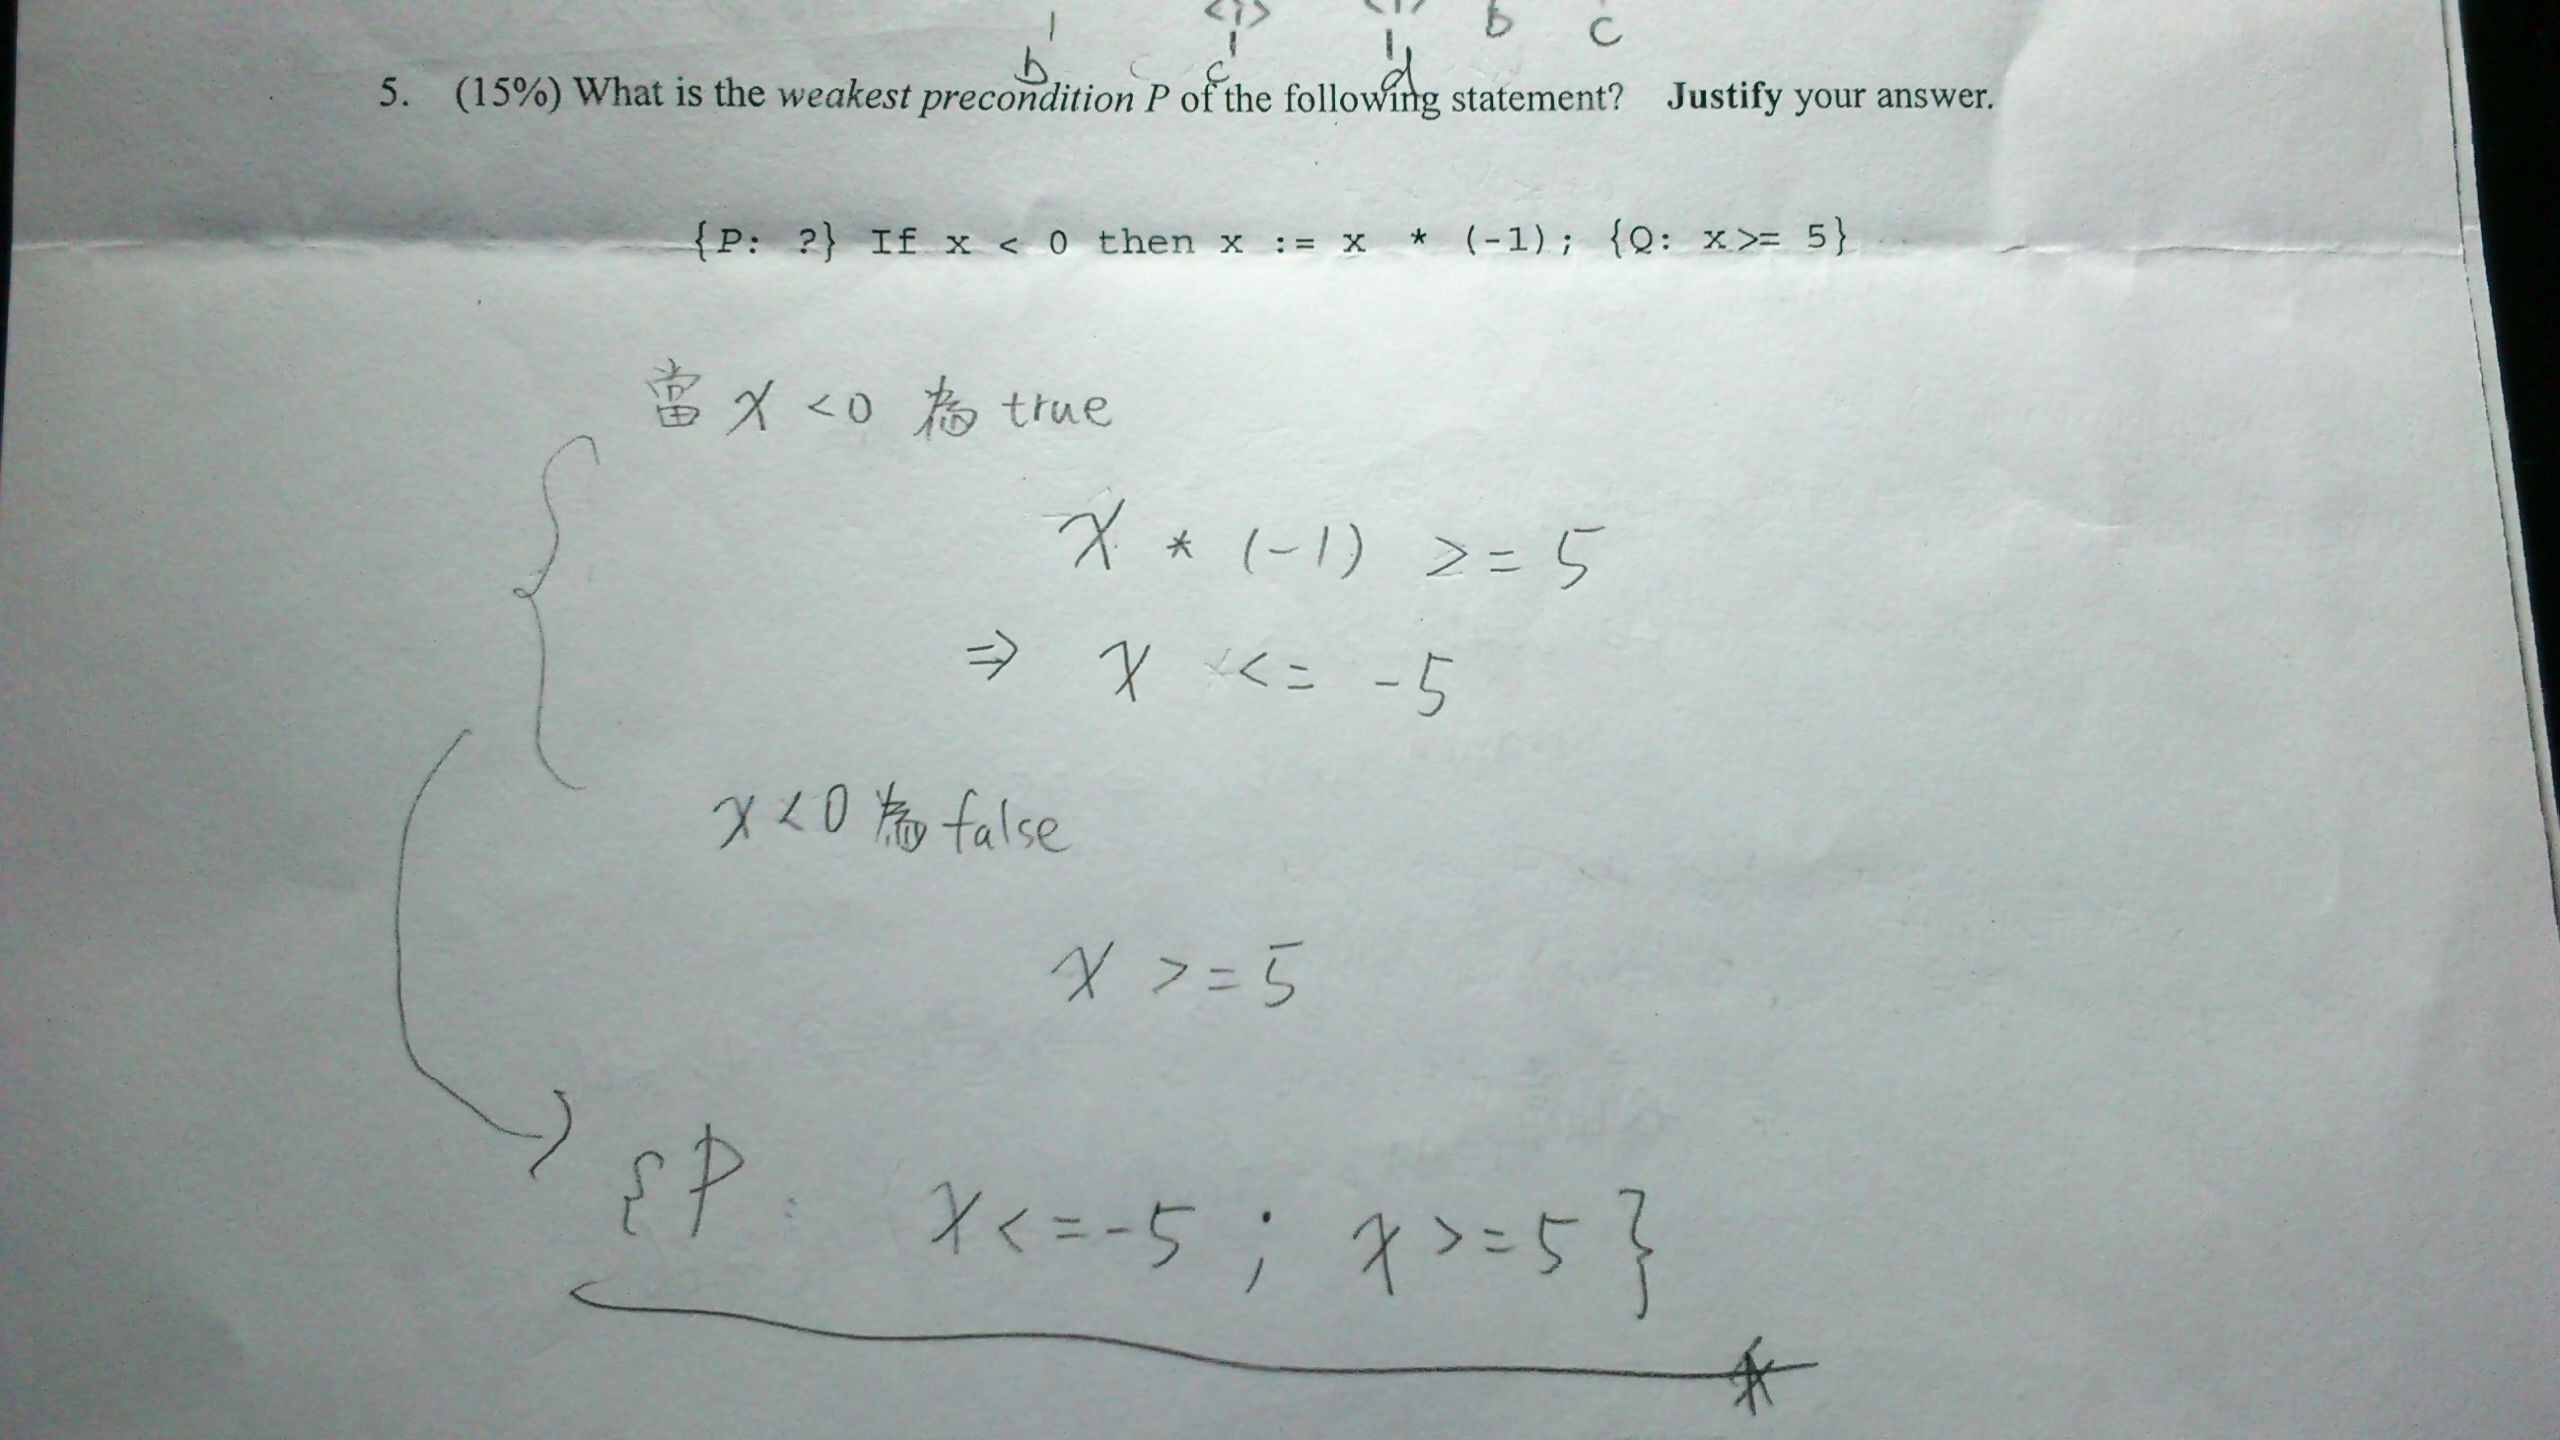 1 <i> <i> b c
b c d
5. (15%) What is the weakest precondition P of the following statement? Justify your answer.
{P: ?} If x < 0 then x := x * (-1); {Q: x>= 5}
當 x <0 為 true
x * (-1) >= 5
⇒ x <= -5
x<0 為 false
x >= 5
{P: x<=-5 ; x>=5}